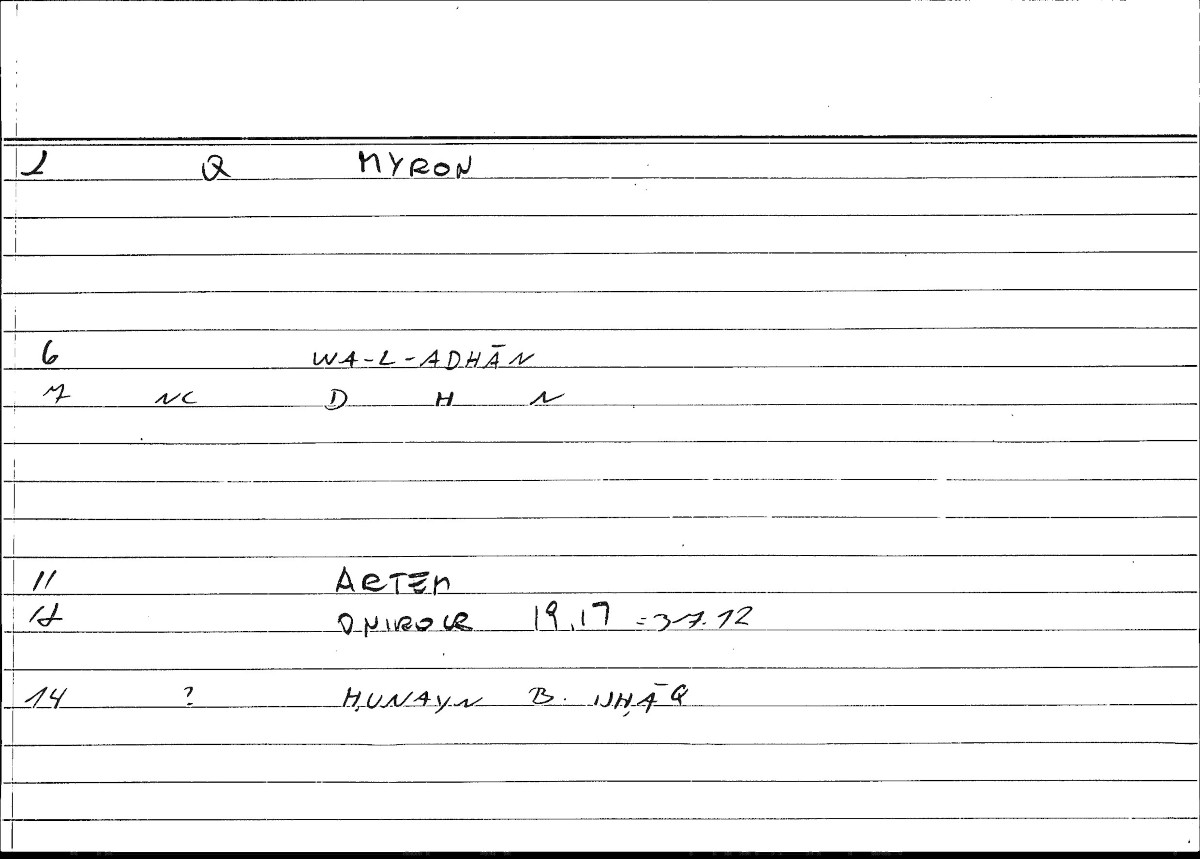 2 Q MYRON
6 WA-L-ADHĀN
7 NC D H N
11 ARTEM
12 ONIROCR 19,17 =37.12
14 ? ḤUNAYN B. ISḤĀQ